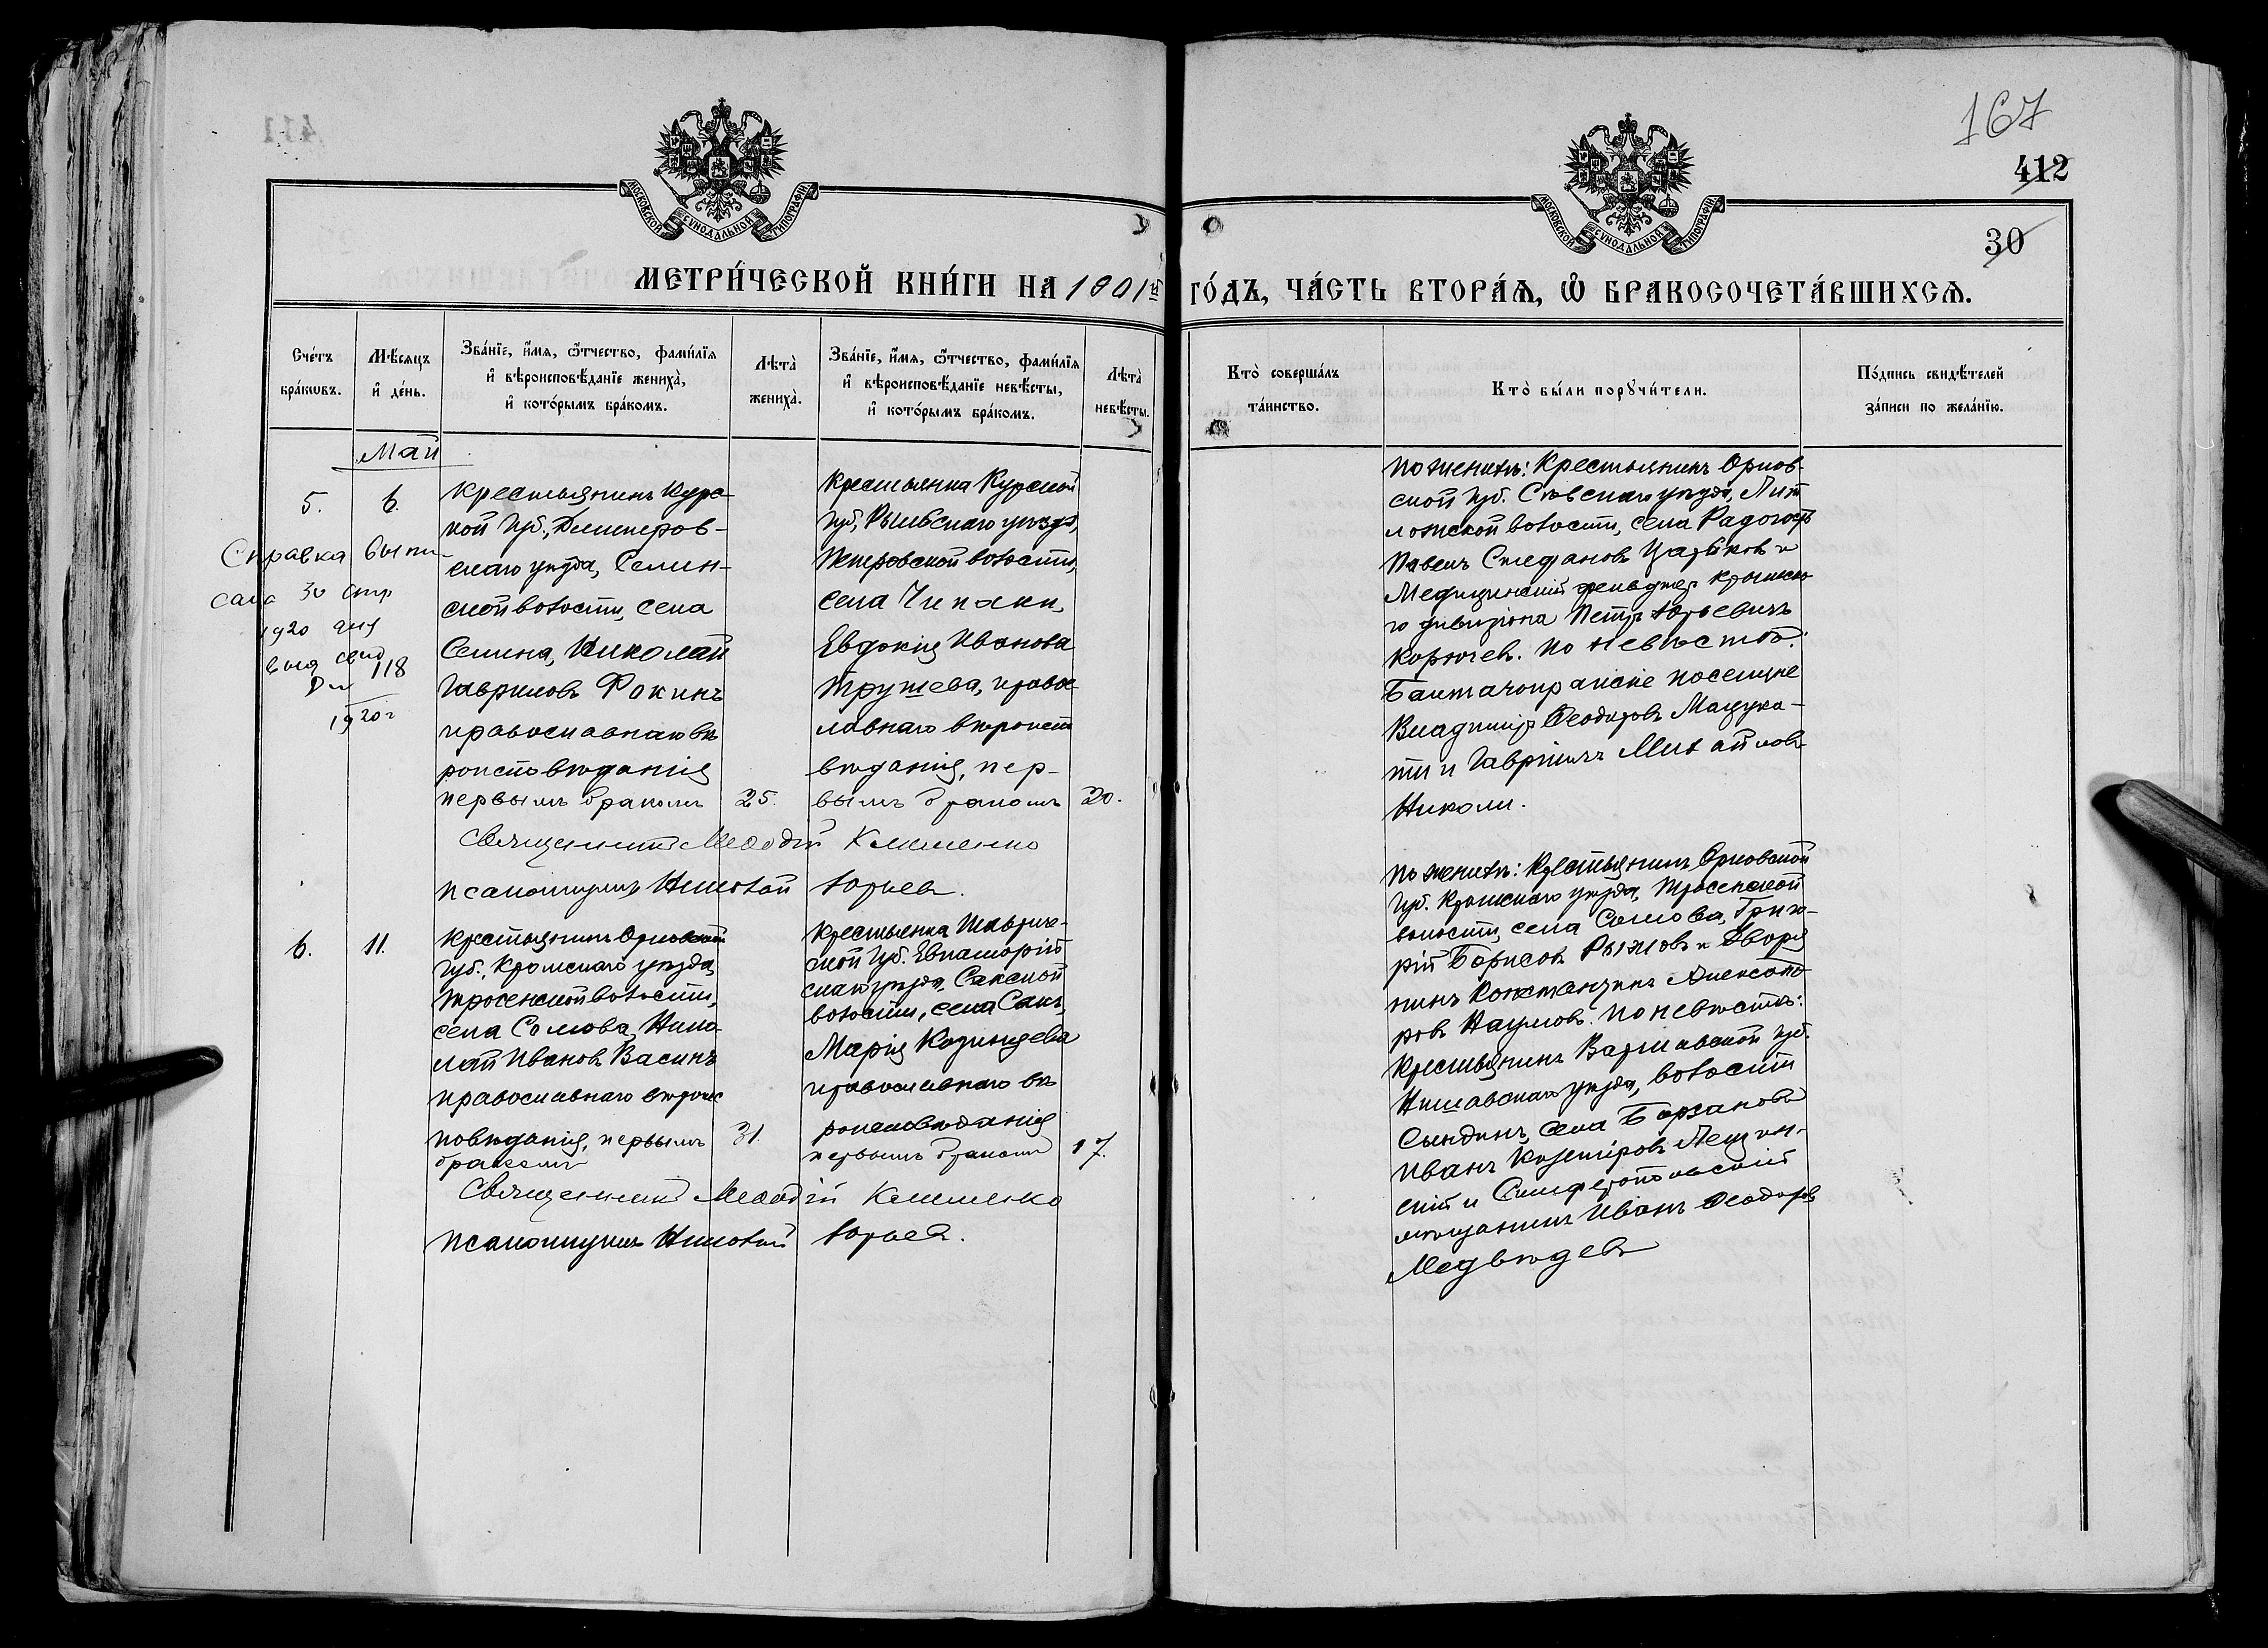 167
412
30
МОСКОВСКОЙ СѴНОДАЛЬНОЙ ТИПОГРАФІИ
МОСКОВСКОЙ СѴНОДАЛЬНОЙ ТИПОГРАФІИ
МЕТРИ́ЧЕСКОЙ КНИ́ГИ НА 1901й ГО́ДЪ, ЧА́СТЬ ВТОРА́Ѧ, Ѽ БРАКОСОЧЕТА́ВШИХСѦ.
Сче́тъ бра́кѡвъ.
Мѣ́сяцъ и҆ де́нь.
Зва́нїе, и҆́мѧ, ѻ҆́тчество, фами́лїѧ
и҆ вѣроисповѣ́данїе жениха̀,
и҆ кото́рымъ бра́комъ.
Лѣта̀ жениха̀.
Зва́нїе, и҆́мѧ, ѻ҆́тчество, фами́лїѧ
и҆ вѣроисповѣ́данїе невѣ́сты,
и҆ кото́рымъ бра́комъ.
Лѣта̀ невѣ́сты.
Кто̀ соверша́лъ та́инство.
Кто̀ бы́ли порꙋчи́тели.
По́дпись свидѣ́телей за́писи по жела́нїю.
Май
5.
6.
Справка выпи-
сана 30 апр
1920
выд свид
118
1920 г
Крестьянинъ Курс-
кой губ., Дмитров-
скаго уѣзда, Селин-
ской волости, села
Селина, Николай
Гавриловъ Фокинъ
православнаго вѣ
роисповѣданія
первымъ бракомъ
25.
Крестьянка Курской
губ. Рыльскаго уѣзда,
Петровской волости,
села Чипаки,
Евдокія Иванова
Трушева, правос
лавнаго вѣроисп
вѣданія, пер-
вымъ бракомъ
20.
Священникъ Меѳодій Клименко
псаломщикъ Николай Юрьев.
По женихѣ: Крестьянинъ Орлов-
ской губ. Сѣвскаго уѣзда, Лит
ложской волости, села Радогощь
Павелъ Стефановъ Царьков и
Медицинскій фельдшер крымска
го дивизіона Петр Юрьевичъ
Корючев. По невѣстѣ:
Балтачокракскіе поселяне
Владиміръ Ѳеодоровъ Мацука-
ти и Гавріилъ Михайлов
Николи.
6.
11.
Крестьянинъ Орловской
губ., Кромскаго уѣзда,
Тросенской волости,
села Сомова, Нико-
лай Ивановъ Васинъ
православнаго вѣроис
повѣданія, первымъ
бракомъ
31.
Крестьянка Тавриче-
ской губ. Евпаторій
скаго уѣзда, Сакской
волости, села Сакъ,
Марія Кодинцева
православнаго вѣ
роисповѣданія
первымъ бракомъ
17.
Священникъ Меѳодій Клименко
псаломщикъ Николай Юрьев.
По женихѣ: Крестьянинъ Орловской
губ. Кромскаго уѣзда, Тросенской
волости, села Сомова, Григо-
рій Борисовъ Рыжовъ и Дворя
нинъ Константинъ Александ
ровъ Наумовъ. По невѣстѣ:
Крестьянинъ Варшавской губ.
Нешавскаго уѣзда, волости
Сындинъ, села Борзанова
Иванъ Козмировъ Лещин-
скій и Симферопольскій
мѣщанинъ Иванъ Ѳеодоров
Медвѣдевъ